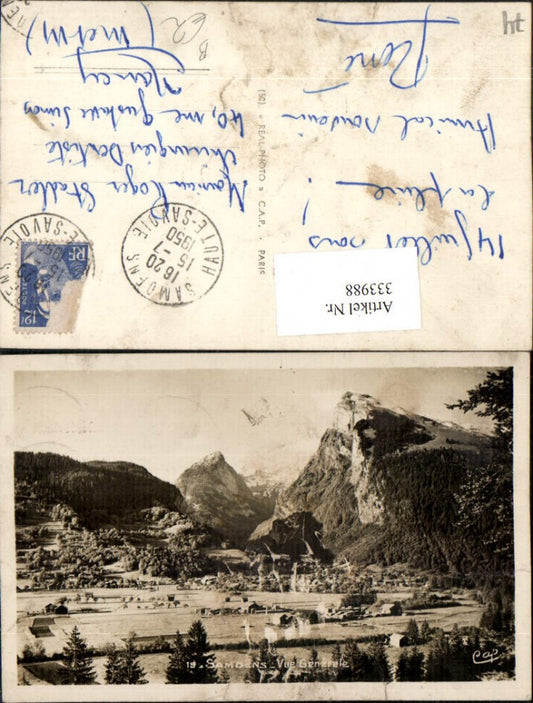 14 Juillet sous
la pluie !
Amical souvenir
René
(SC) « REAL-PHOTO » C.A.P. . PARIS
Monsieur Roger Stadler
Chirurgien Dentiste
40, rue Gustave Simon
Nancy
(M et M)
SAMOENS
16 20
15 -7
1950
HAUTE-SAVOIE
RF
Artikel Nr.
333988
B
19 - SAMOENS - Vue Générale
Cap